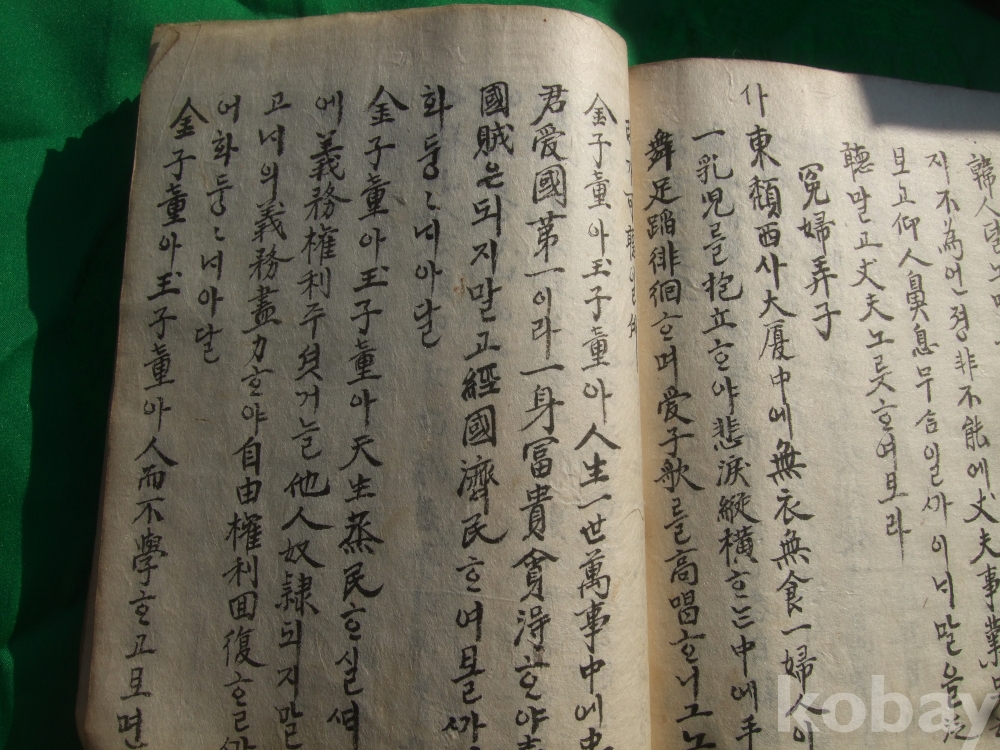 韓人
지不爲언졍非不能에丈夫事業
보고仰人鼻息무合일가이네말을
聽말고丈夫노릇ᄒᆞ여보라
冤婦弄子
사東頹西사大厦中에無衣無食一婦人이
一乳兒를抱立ᄒᆞ야悲淚縱橫ᄒᆞᄂᆞᆫ中에手
舞足蹈徘徊ᄒᆞ며愛子歌를高唱ᄒᆞ니그노
金子童아玉子童아人生一世萬事中에忠
君愛國第一이라一身富貴貪得ᄒᆞ야
國賊은되지말고經國濟民ᄒᆞ여볼가
화둥〻네아달
金子童아玉子童아天生蒸民ᄒᆞ실셔
에義務權利주셧거늘他人奴隸되지말
고네의義務盡力ᄒᆞ야自由權利回復ᄒᆞᆯ가
어화둥〻네아달
金子童아玉子童아人而不學ᄒᆞ고보면
kobay